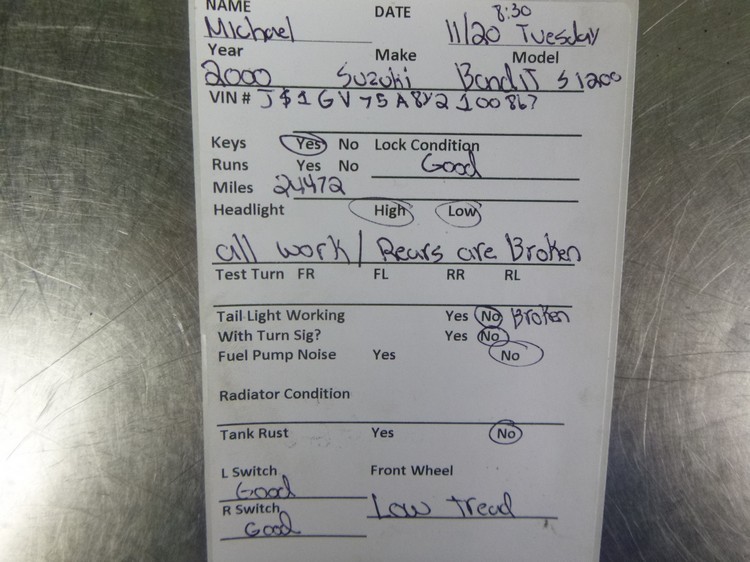 NAME Michael DATE 8:30 11/20 Tuesday
Year Make Model
2000 Suzuki Bandit S1200
VIN # JS1GV75A8Y2100867
Keys Yes No Lock Condition
Runs Yes No Good
Miles 24472
Headlight High Low
all work / Rears are Broken
Test Turn FR FL RR RL
Tail Light Working Yes No Broken
With Turn Sig? Yes No
Fuel Pump Noise Yes No
Radiator Condition
Tank Rust Yes No
L Switch Front Wheel
Good
R Switch Low Tread
Good